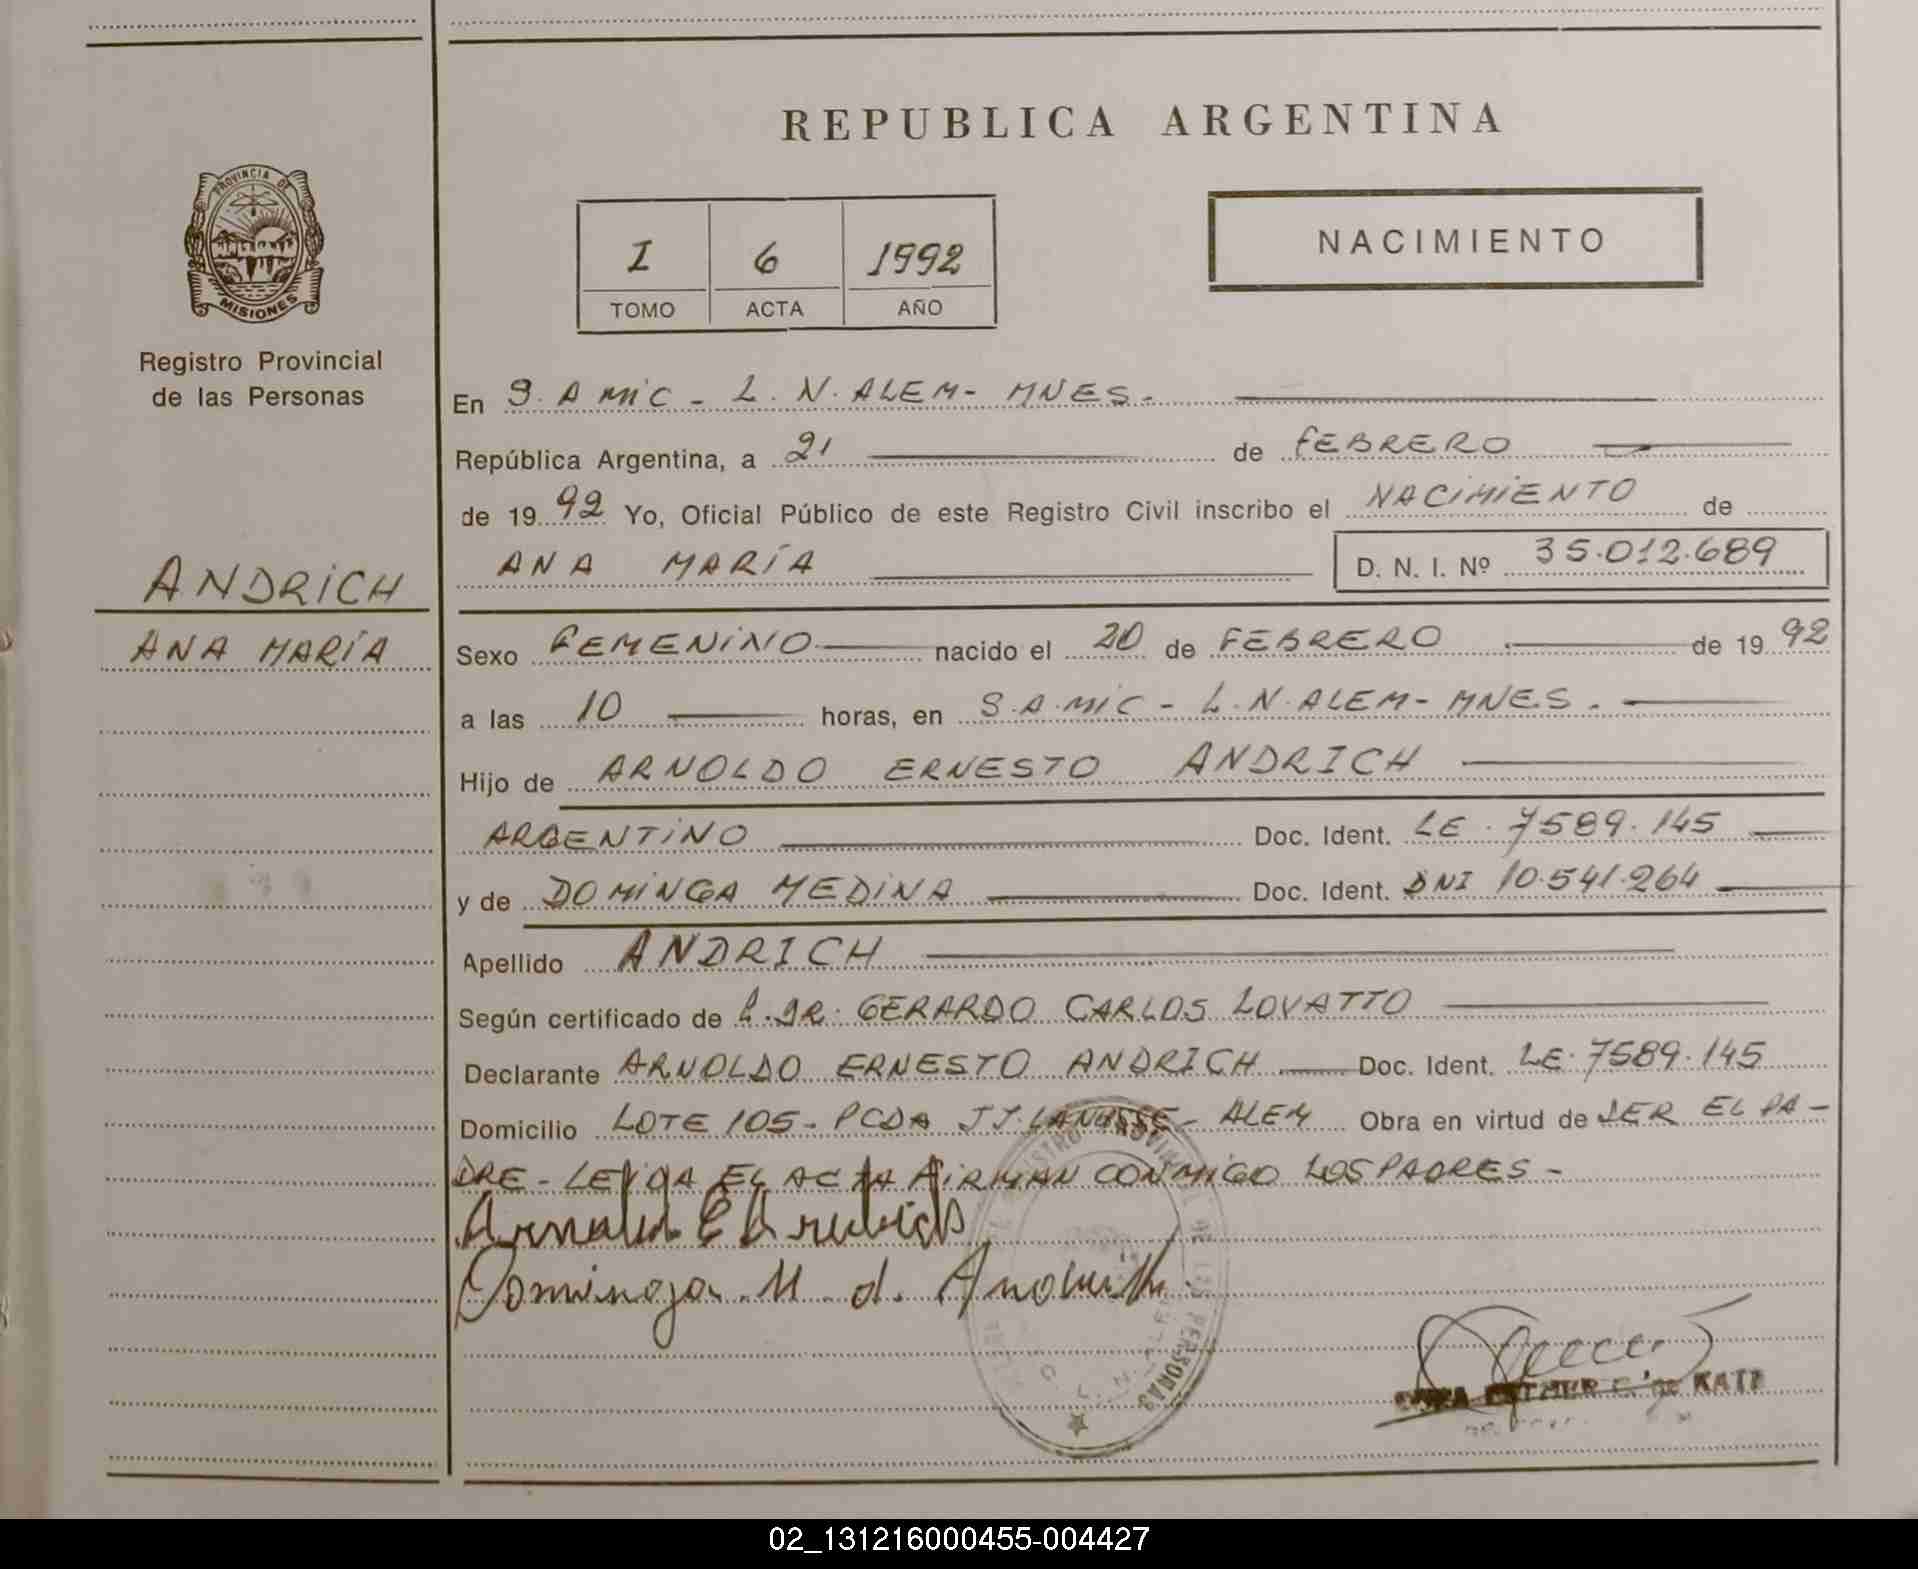 REPUBLICA ARGENTINA
PROVINCIA DE
MISIONES
Registro Provincial
de las Personas
I 6 1992
TOMO ACTA AÑO
NACIMIENTO
ANDRICH
ANA MARÍA
En S.A MIC - L.N.ALEM- MNES.
República Argentina, a 21 de FEBRERO
de 1992 Yo, Oficial Público de este Registro Civil inscribo el NACIMIENTO de
ANA MARÍA D. N. I. Nº 35.012.689
Sexo FEMENINO nacido el 20 de FEBRERO de 1992
a las 10 horas, en S.A.MIC - L.N.ALEM- MNES.
Hijo de ARNOLDO ERNESTO ANDRICH
ARGENTINO Doc. Ident. LE. 7589.145
y de DOMINGA MEDINA Doc. Ident. DNI 10.541.264
Apellido ANDRICH
Según certificado de GERARDO CARLOS LOVATTO
Declarante ARNOLDO ERNESTO ANDRICH Doc. Ident. LE. 7589.145
Domicilio LOTE 105- PCDA J.J.LANUSSE- ALEM Obra en virtud de SER EL PA-
DRE- LEIDA EL ACTA FIRMAN CONMIGO LOS PADRES-
Dominga M. d. Andrich
DE LAS PERSONAS
02_131216000455-004427